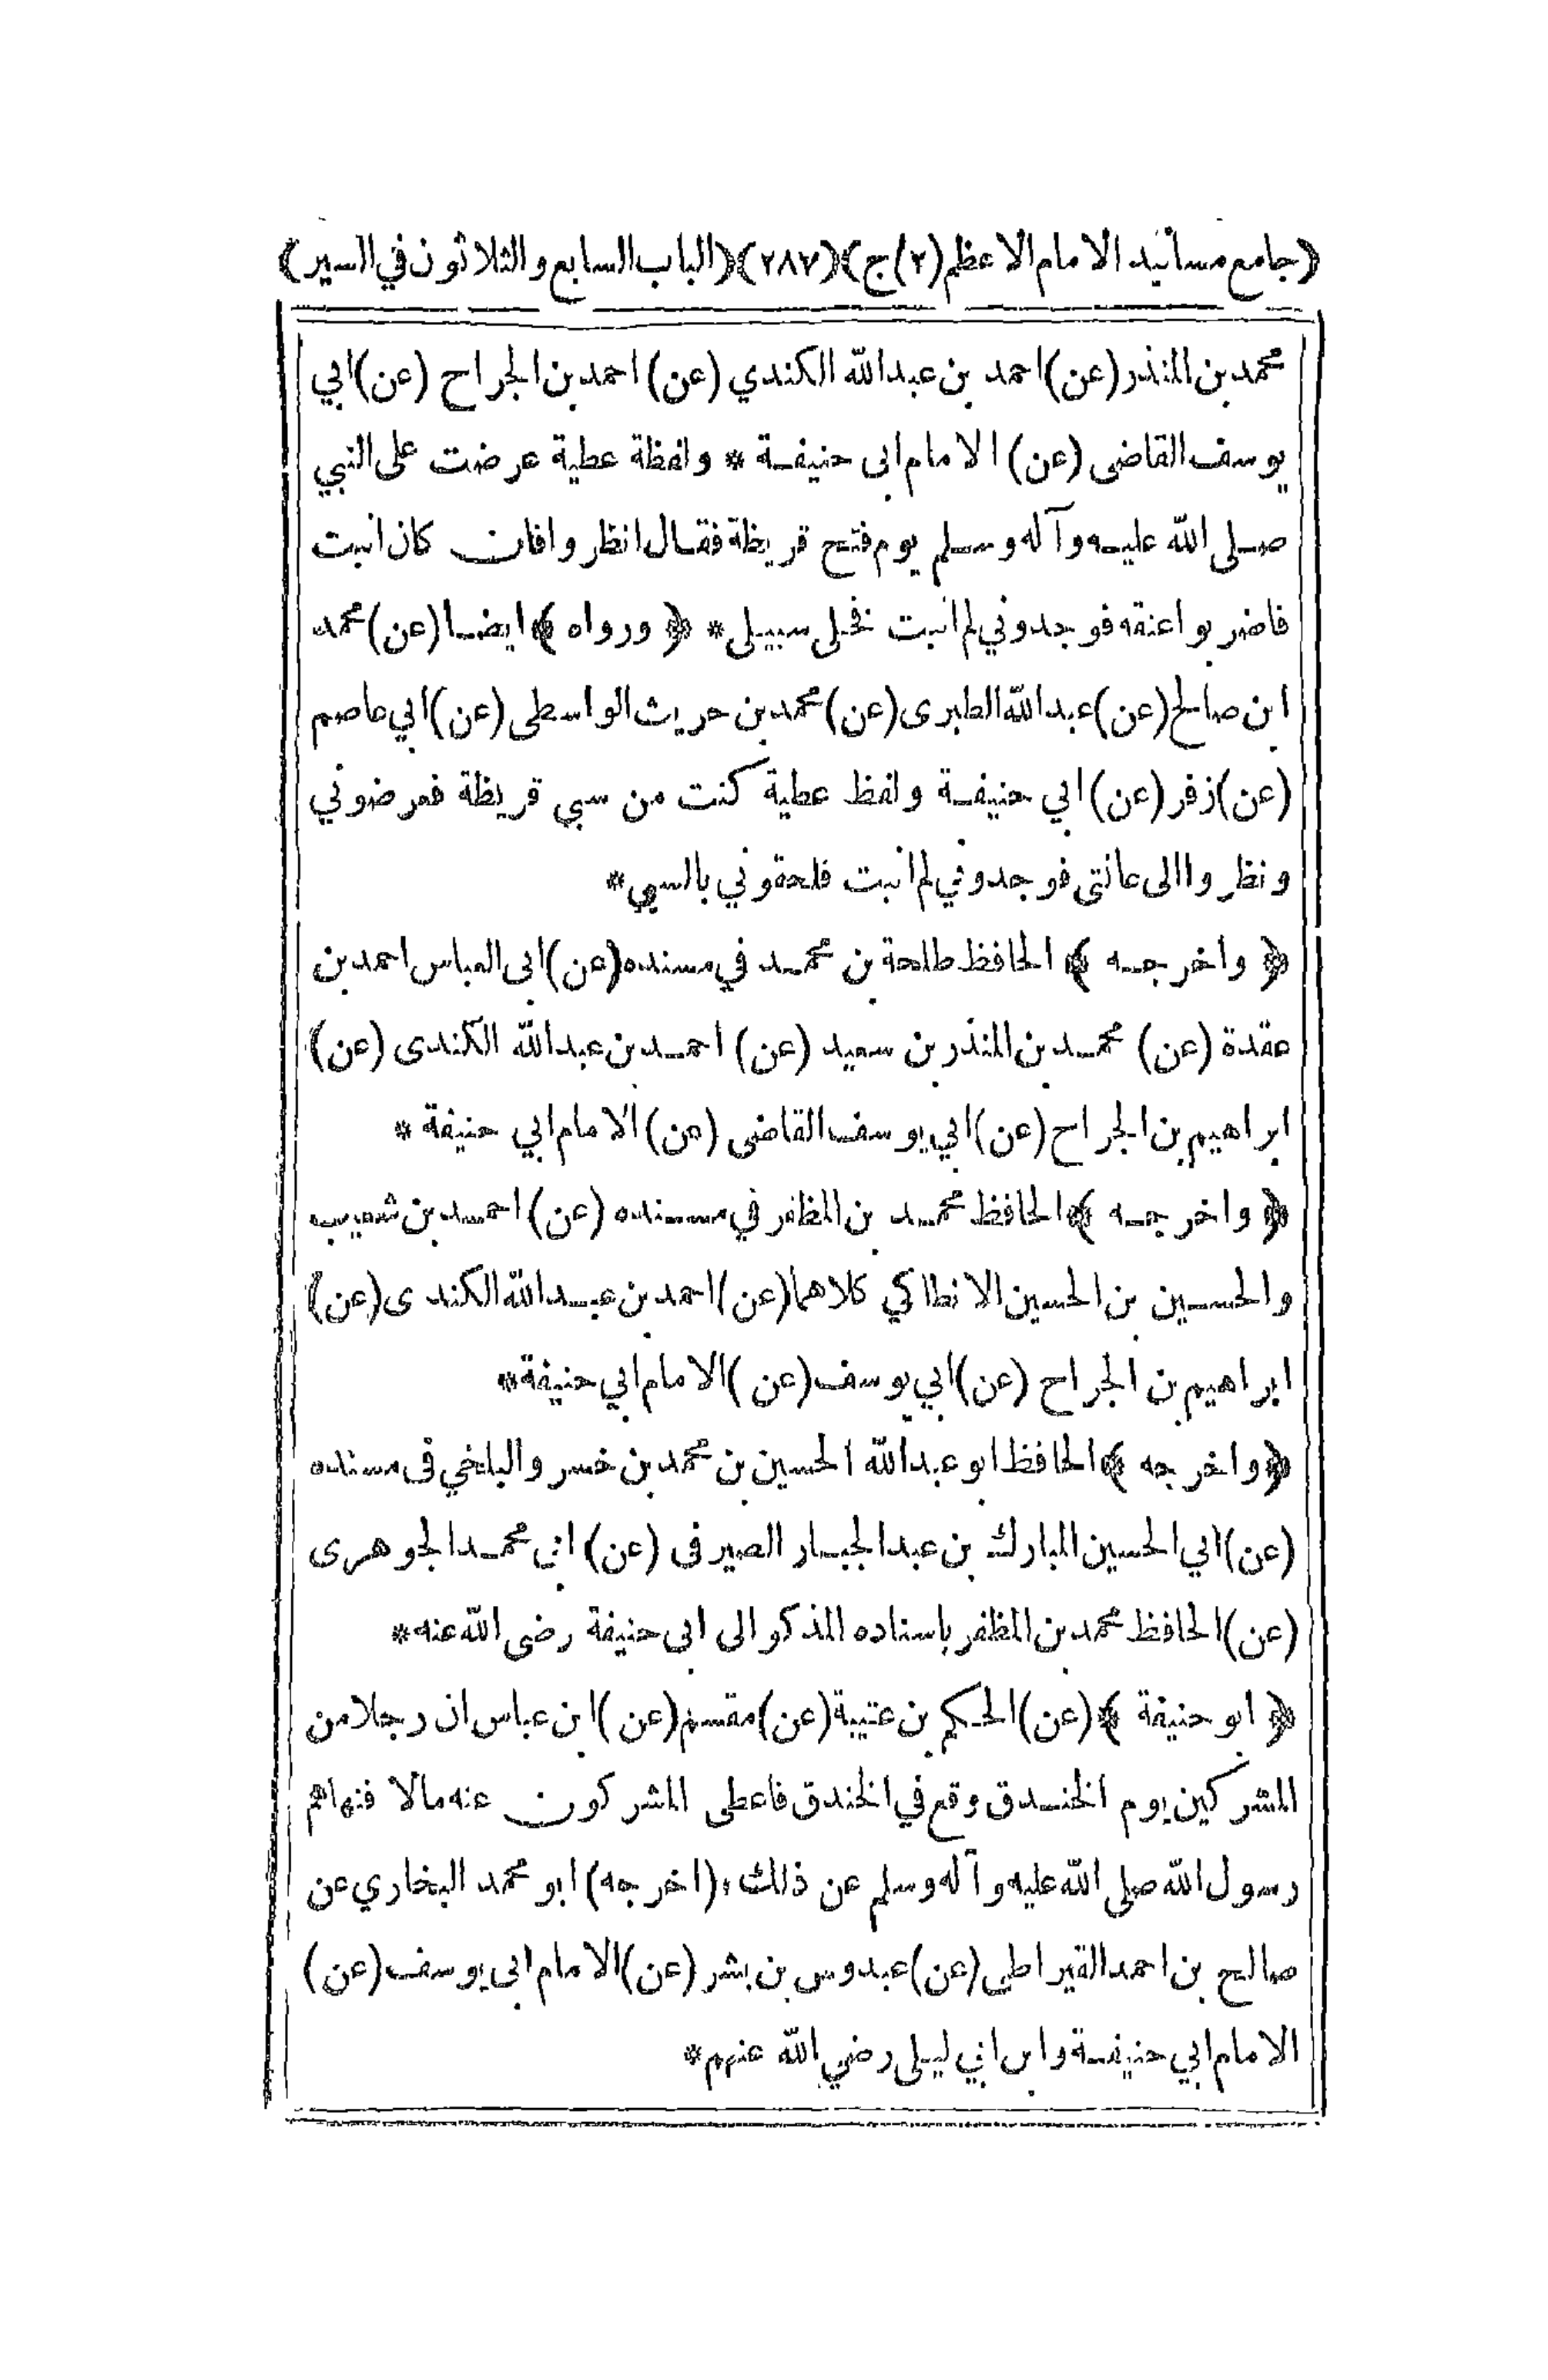 (جامع مسانيد الامام الاعظم (٢) ج) (٢٨٧) (الباب السابع والثلاثون في السير)
محمد بن المنذر (عن) احمد بن عبدالله الكندي (عن) احمد بن الجراح (عن) ابي
يوسف القاضى (عن) الامام ابى حنيفة * ولفظة عطية عرضت على النبي
صلى الله عليه وآله وسلم يوم فتح قريظة فقال انظروا فان كان انبت
فاضربوا عنقه فوجدوني لم انبت فخلى سبيلى * ﴿ ورواه ﴾ ايضا (عن) محمد
ابن صالح (عن) عبدالله الطبرى (عن) محمد بن حريث الواسطى (عن) ابي عاصم
(عن) زفر (عن) ابي حنيفة ولفظ عطية كنت من سبي قريظة فعرضوني
ونظروا الى عانتى فوجدوني لم انبت فلحقوني بالسبي *
﴿ واخرجه ﴾ الحافظ طلحة بن محمد في مسنده (عن) ابى العباس احمد بن
عقدة (عن) محمد بن المنذر بن سعيد (عن) احمد بن عبدالله الكندى (عن)
ابراهيم بن الجراح (عن) ابي يوسف القاضى (عن) الامام ابي حنيفة *
﴿ واخرجه ﴾ الحافظ محمد بن المظفر في مسنده (عن) احمد بن شعيب
والحسين بن الحسين الانطاكي كلاهما (عن) احمد بن عبدالله الكندى (عن)
ابراهيم بن الجراح (عن) ابي يوسف (عن) الامام ابي حنيفة *
﴿ واخرجه ﴾ الحافظ ابو عبدالله الحسين بن محمد بن خسرو البلخي فى مسنده
(عن) ابي الحسين المبارك بن عبدالجبار الصيرفى (عن) ابى محمد الجوهرى
(عن) الحافظ محمد بن المظفر باسناده المذكو الى ابى حنيفة رضى الله عنه *
﴿ ابو حنيفة ﴾ (عن) الحكم بن عتيبة (عن) مقسم (عن) ابن عباس ان رجلا من
المشركين يوم الخندق وقع في الخندق فاعطى المشركون عنه مالا فنهاهم
رسول الله صلى الله عليه وآله وسلم عن ذلك، (اخرجه) ابو محمد البخاري عن
صالح بن احمد القيراطى (عن) عبدوس بن بشر (عن) الامام ابى يوسف (عن)
الامام ابي حنيفة وابن ابي ليلى رضي الله عنهم *